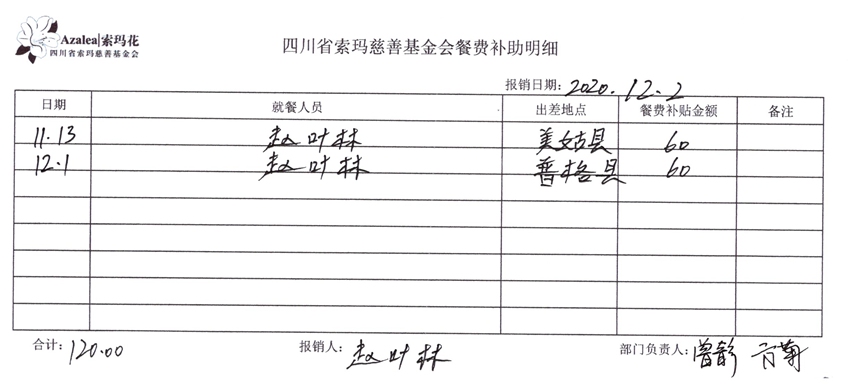 Azalea|索玛花
四川省索玛慈善基金会
四川省索玛慈善基金会餐费补助明细
报销日期：2020.12.2
日期 就餐人员 出差地点 餐费补贴金额 备注
11.13 赵叶林 美姑县 60
12.1 赵叶林 普格县 60
合计：120.00 报销人：赵叶林 部门负责人：曾